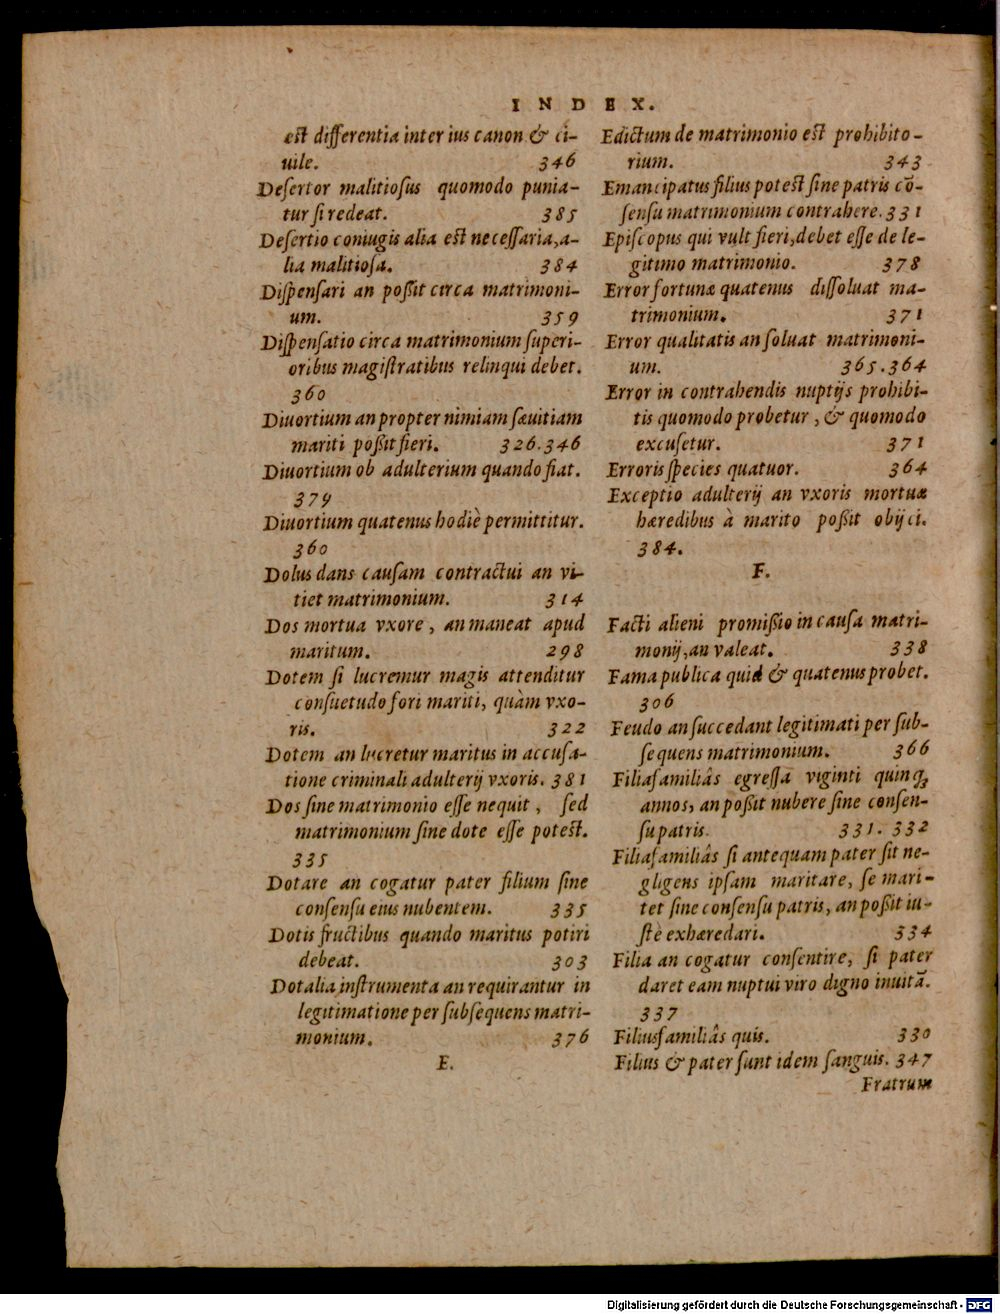 INDEX.
est differentia inter ius canon & ci-
uile. 346
Desertor malitiosus quomodo punia-
tur si redeat. 385
Desertio coniugis alia est necessaria, a-
lia malitiosa. 384
Dispensari an possit circa matrimoni-
um. 359
Dispensatio circa matrimonium superi-
oribus magistratibus relinqui debet.
360
Diuortium an propter nimiam sæuitiam
mariti possit fieri. 326.346
Diuortium ob adulterium quando fiat.
379
Diuortium quatenus hodiè permittitur.
360
Dolus dans causam contractui an vi-
tiet matrimonium. 314
Dos mortua vxore, an maneat apud
maritum. 298
Dotem si lucremur magis attenditur
consuetudo fori mariti, quàm vxo-
ris. 322
Dotem an lucretur maritus in accusa-
tione criminali adulterij vxoris. 381
Dos sine matrimonio esse nequit, sed
matrimonium sine dote esse potest.
335
Dotare an cogatur pater filium sine
consensu eius nubentem. 335
Dotis fructibus quando maritus potiri
debeat. 303
Dotalia instrumenta an requirantur in
legitimatione per subsequens matri-
monium. 376
E.
Edictum de matrimonio est prohibito-
rium. 343
Emancipatus filius potest sine patris cō-
sensu matrimonium contrahere. 331
Episcopus qui vult fieri, debet esse de le-
gitimo matrimonio. 378
Error fortunæ quatenus dissoluat ma-
trimonium. 371
Error qualitatis an soluat matrimoni-
um. 365.364
Error in contrahendis nuptijs prohibi-
tis quomodo probetur, & quomodo
excusetur. 371
Erroris species quatuor. 364
Exceptio adulterij an vxoris mortuæ
hæredibus à marito possit obijci.
384.
F.
Facti alieni promissio in causa matri-
monij, an valeat. 338
Fama publica quid & quatenus probet.
306
Feudo an succedant legitimati per sub-
sequens matrimonium. 366
Filiafamiliâs egressa viginti quinq;
annos, an possit nubere sine consen-
su patris. 331. 332
Filiafamiliâs si antequam pater sit ne-
gligens ipsam maritare, se mari-
tet sine consensu patris, an possit iu-
stè exhæredari. 334
Filia an cogatur consentire, si pater
daret eam nuptui viro digno inuitā.
337
Filiusfamiliâs quis. 330
Filius & pater sunt idem sanguis. 347
Fratrum
Digitalisierung gefördert durch die Deutsche Forschungsgemeinschaft - DFG